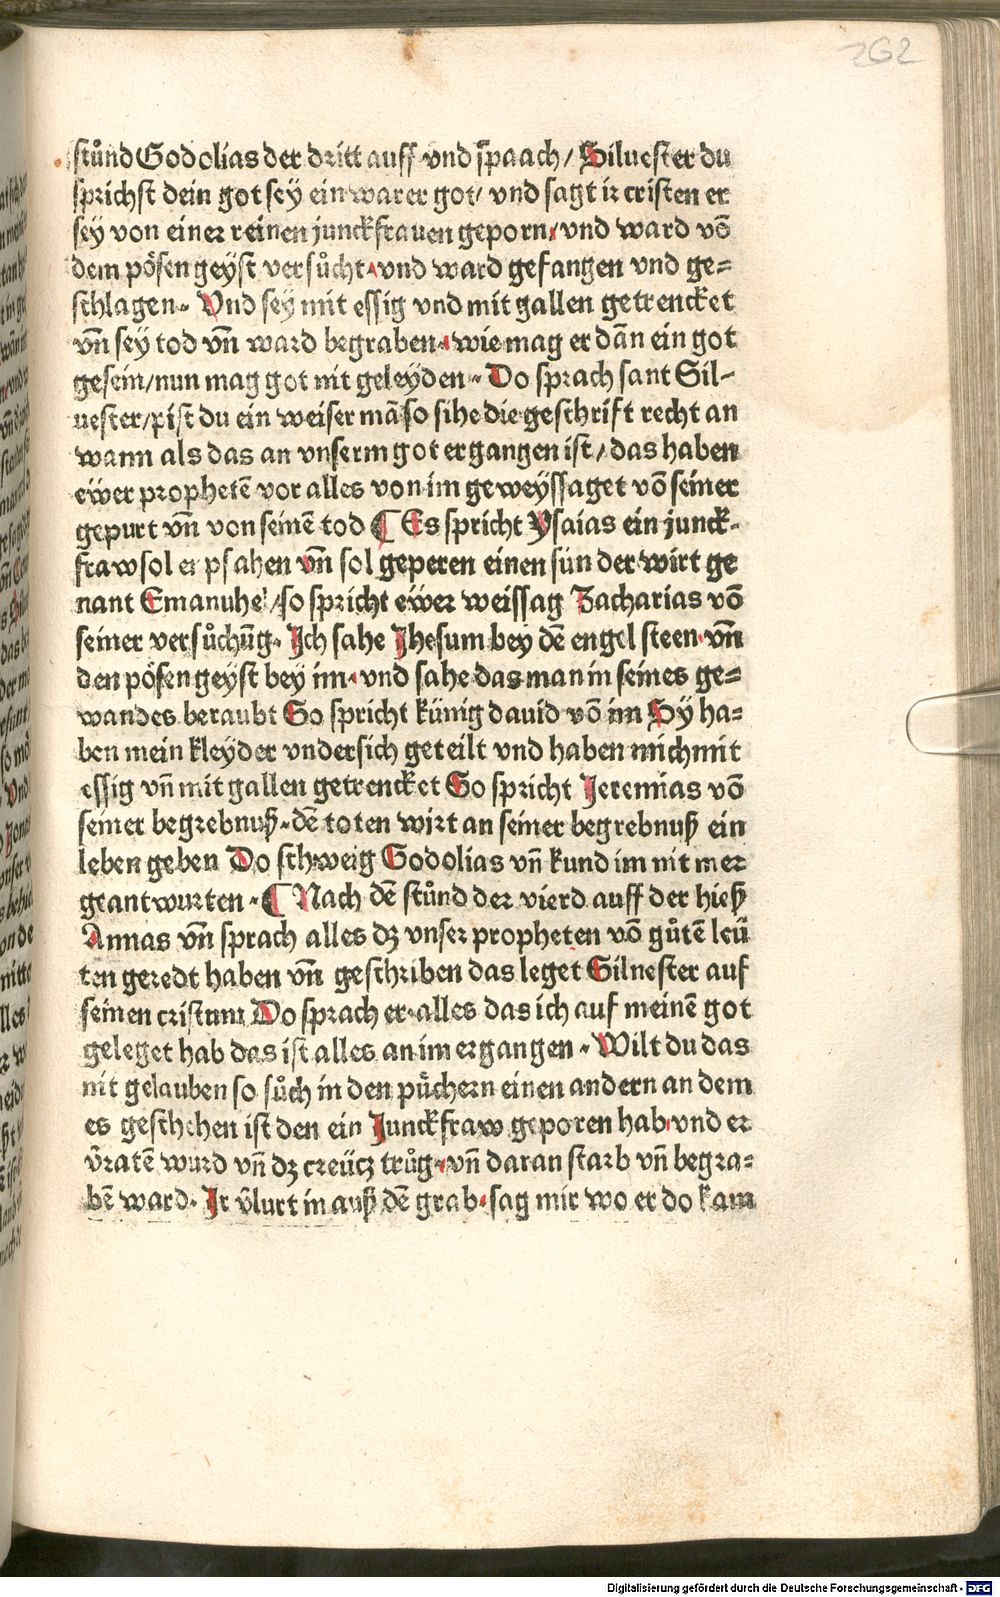 262
stůnd Godolias der dritt auff vnd spraach / Siluester du
sprichst dein got sey ein warer got / vnd sagt ir cristen er
sey von einer reinen junckfrauen geporn / vnd ward võ
dem pösen geyst versůcht · vnd ward gefangen vnd ge=
schlagen · Vnd sey mit essig vnd mit gallen getrencket
vñ sey tod vñ ward begraben · wie mag er dãn ein got
gesein / nun mag got nit geleyden · Do sprach sant Sil-
uester / pist du ein weiser mã so sihe die geschrift recht an
wann als das an vnserm got ergangen ist / das haben
ewer prophetẽ vor alles von im geweyssaget võ seiner
gepurt vñ von seinẽ tod ¶ Es spricht Ysaias ein junck-
fraw sol enpfahen vñ sol geperen einen sun der wirt ge
nant Emanuhel / so spricht ewer weissag Zacharias võ
seiner versůchũg · Ich sahe Jhesum bey dẽ engel steen · vñ
den pösen geyst bey im · vnd sahe das man in seines ge=
wandes beraubt So spricht künig dauid võ im Sy ha=
ben mein kleyder vndersich geteilt vnd haben mich mit
essig vñ mit gallen getrencket So spricht Jeremias võ
seiner begrebnuß · dẽ toten wirt an seiner begrebnuß ein
leben geben Do schweig Godolias vñ kund im nit mer
geantwurten · ¶ Nach dẽ stůnd der vierd auff der hieß
Annas vñ sprach alles dz vnser propheten võ gůtẽ leü
ten geredt haben vñ geschriben das leget Siluester auf
seinen cristum Do sprach er · alles das ich auf meinẽ got
geleget hab das ist alles an im ergangen · Wilt du das
nit gelauben so sůch in den püchern einen andern an dem
es geschehen ist den ein Junckfraw geporen hab · vnd er
v̄ratẽ wurd vñ dz creücz trůg · vñ daran starb vñ begra=
bẽ ward · Ir v̄lurt in auß dẽ grab · sag mir wo er do kam
Digitalisierung gefördert durch die Deutsche Forschungsgemeinschaft - DFG